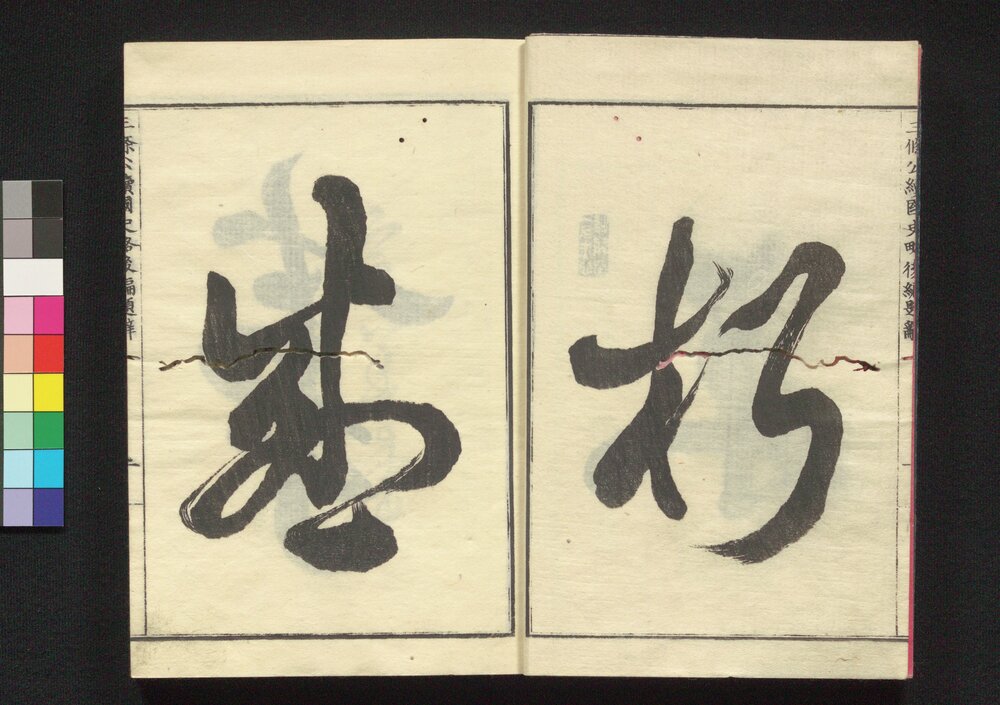 三條公續國史略後編題辭
朽
盛
三條公續國史略後編題辭